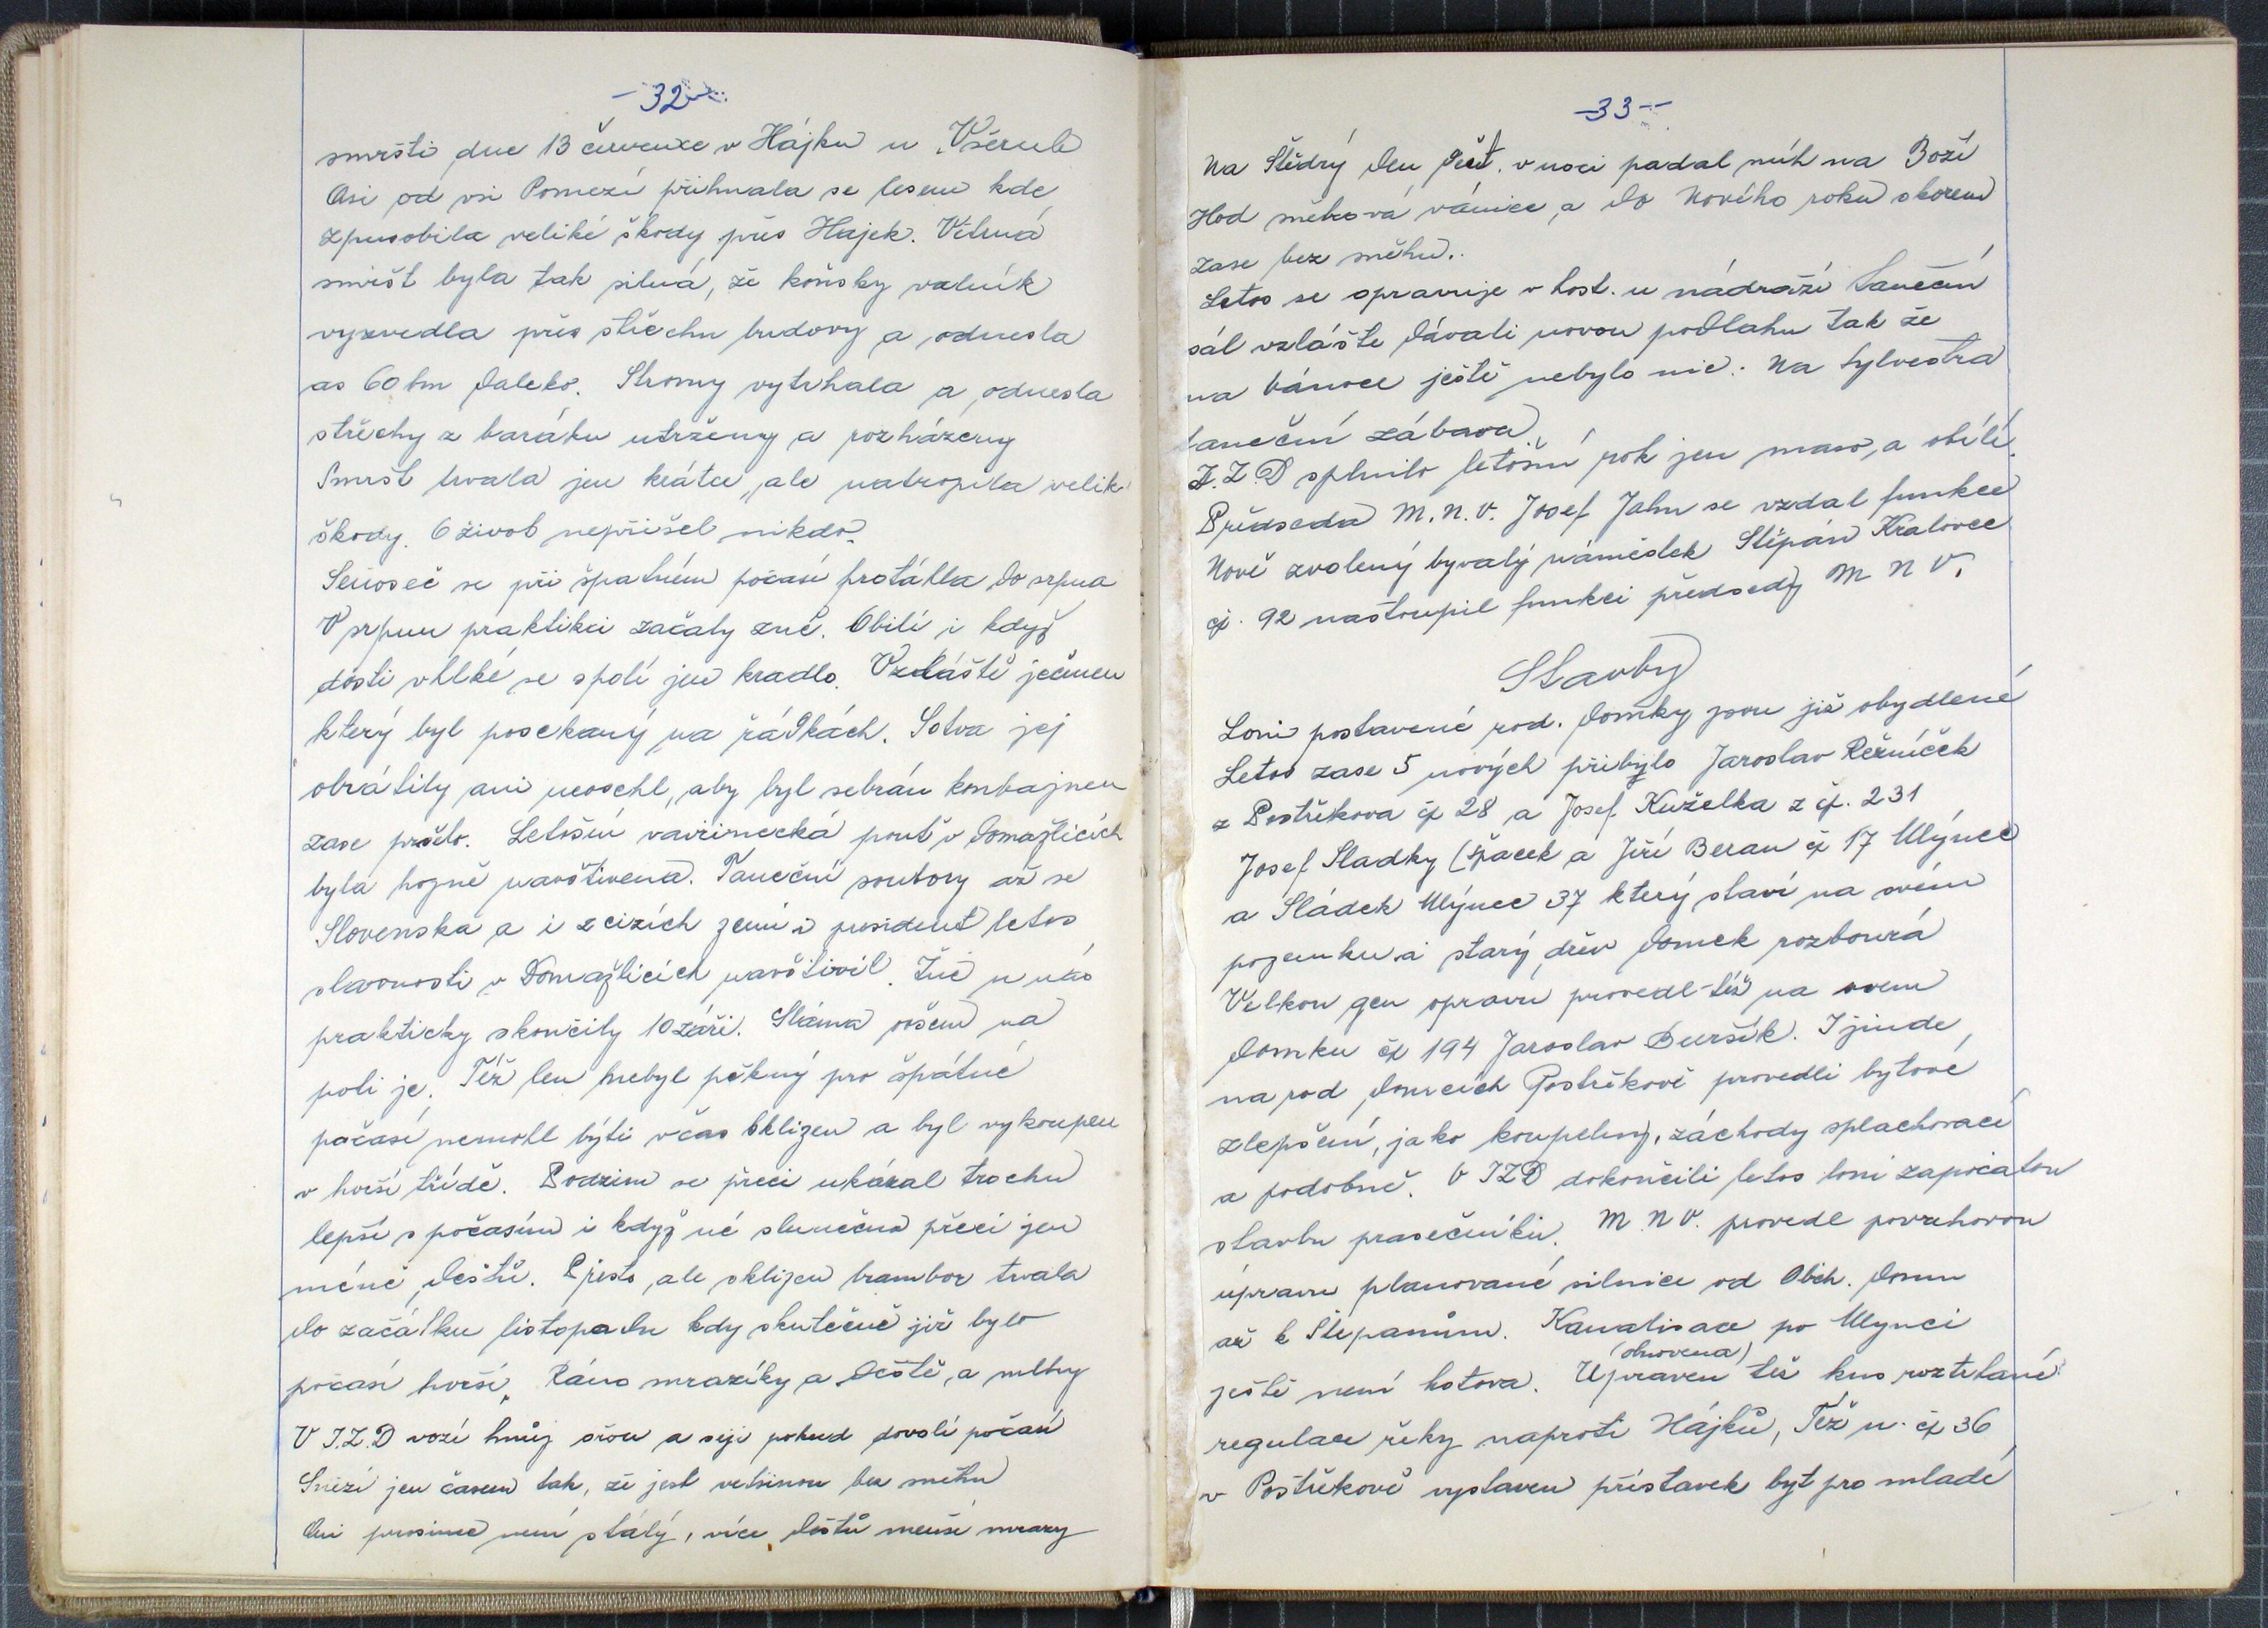 - 32 -
smršti dne 13 července v Hájku u Všerub
Asi od vsi Pomezí přihnala se lesem kde
zpusobila veliké škody přes Hajek. Větrná
smršt byla tak silná, že koňsky valník
vyzvedla přes střechu budovy a odnesla
as 60 bm daleko. Stromy vytrhala a odnesla
střechy z baráku utrženy a rozházeny
Smršt trvala jen krátce, ale natropila velik
škody. O život nepřišel nikdo.
Senoseč se při špatném počasí protáhla do srpna
V srpnu praktikci začaly žně. Obilí i když
dosti vlhké se spolí jen kradlo. Vzláště ječmen
který byl posekaný na řádkách. Sotva jej
obrátily ani neoschl, aby byl sebrán kombajnem
zase pršelo. Letošní vavřinecká pouť v Domažlicích
byla hojně navštivena. Taneční soubory až se
Slovenska a i z cizích zemí i president letos
slavnosti v Domažlicích navštivil. Žně u nás
prakticky skončily 10 září. Sláma ovšem na
poli je. Též len nebyl pěkný pro špatné
počasí nemohl býti včas sklizen a byl vykoupen
v horší třídě. Podzim se přeci ukázal trochu
lepší s počasím i když né slunečno přeci jen
méně deštů. Přesto ale sklizen brambor trvala
do začátku listopadu kdy skutečně již bylo
počasí horší, Ráno mrazíky a deště, a mlhy
V J.Z.D vozí hnůj ořou a sejí pokud dovolí počasí
Sněží jen časem tak, že jest vetšinou bez sněhu
Ani prosinec není stálý, více deštů menší mrazy
- 33 -
Na Štědrý den déšť. v noci padal níh na Boží
Hod sněhová vánice, a do Nového roku skorem
zase bez sněhu..
Letos se opravuje v host. u nádraží taneční
sál vzláště dávali novou podlahu tak že
na vánoce ještě nebylo nic. Na Sylvestra
taneční zábava.
J.Z.D splnilo letošní rok jen maso, a obilí.
Předseda M.N.V. Josef Jahn se vzdal funkce
Nově zvolený byvalý náměstek Štěpán Kralovec
čp. 92 nastoupil funkci předsedy M N V.
Stavby
Loni postavené rod. domky jsou již obydlené
Letos zase 5 nových přibylo Jaroslav Řezníček
z Postřekova čp 28 a Josef Kuželka z čp. 231
Josef Sladky (Špacek a Jiří Beran čp 17 Mlýnec
a Sládek Mlýnec 37 který staví na svém
pozemku a starý dřev domek rozbourá
Velkou gen opravu provedl též na svem
domku čp 194 Jaroslav Buršík. I jinde
na rod domcích Postřekově provedli bytové
zlepšení, jako koupelny, záchody splachovací
a podobně. V JZD dokončili letos loni započatou
stavbu prasečníku. M.N.V. provedl povrchovou
úpravu planované silnice od Obch. domu
až k Štepanům. Kanalisace po Mlynci
ještě není hotova. Upraven (obnovena) též kus roztrhané
regulace řeky naproti Hájků, Též u čp 36
v Postřekově vystaven přístavek byt pro mladé